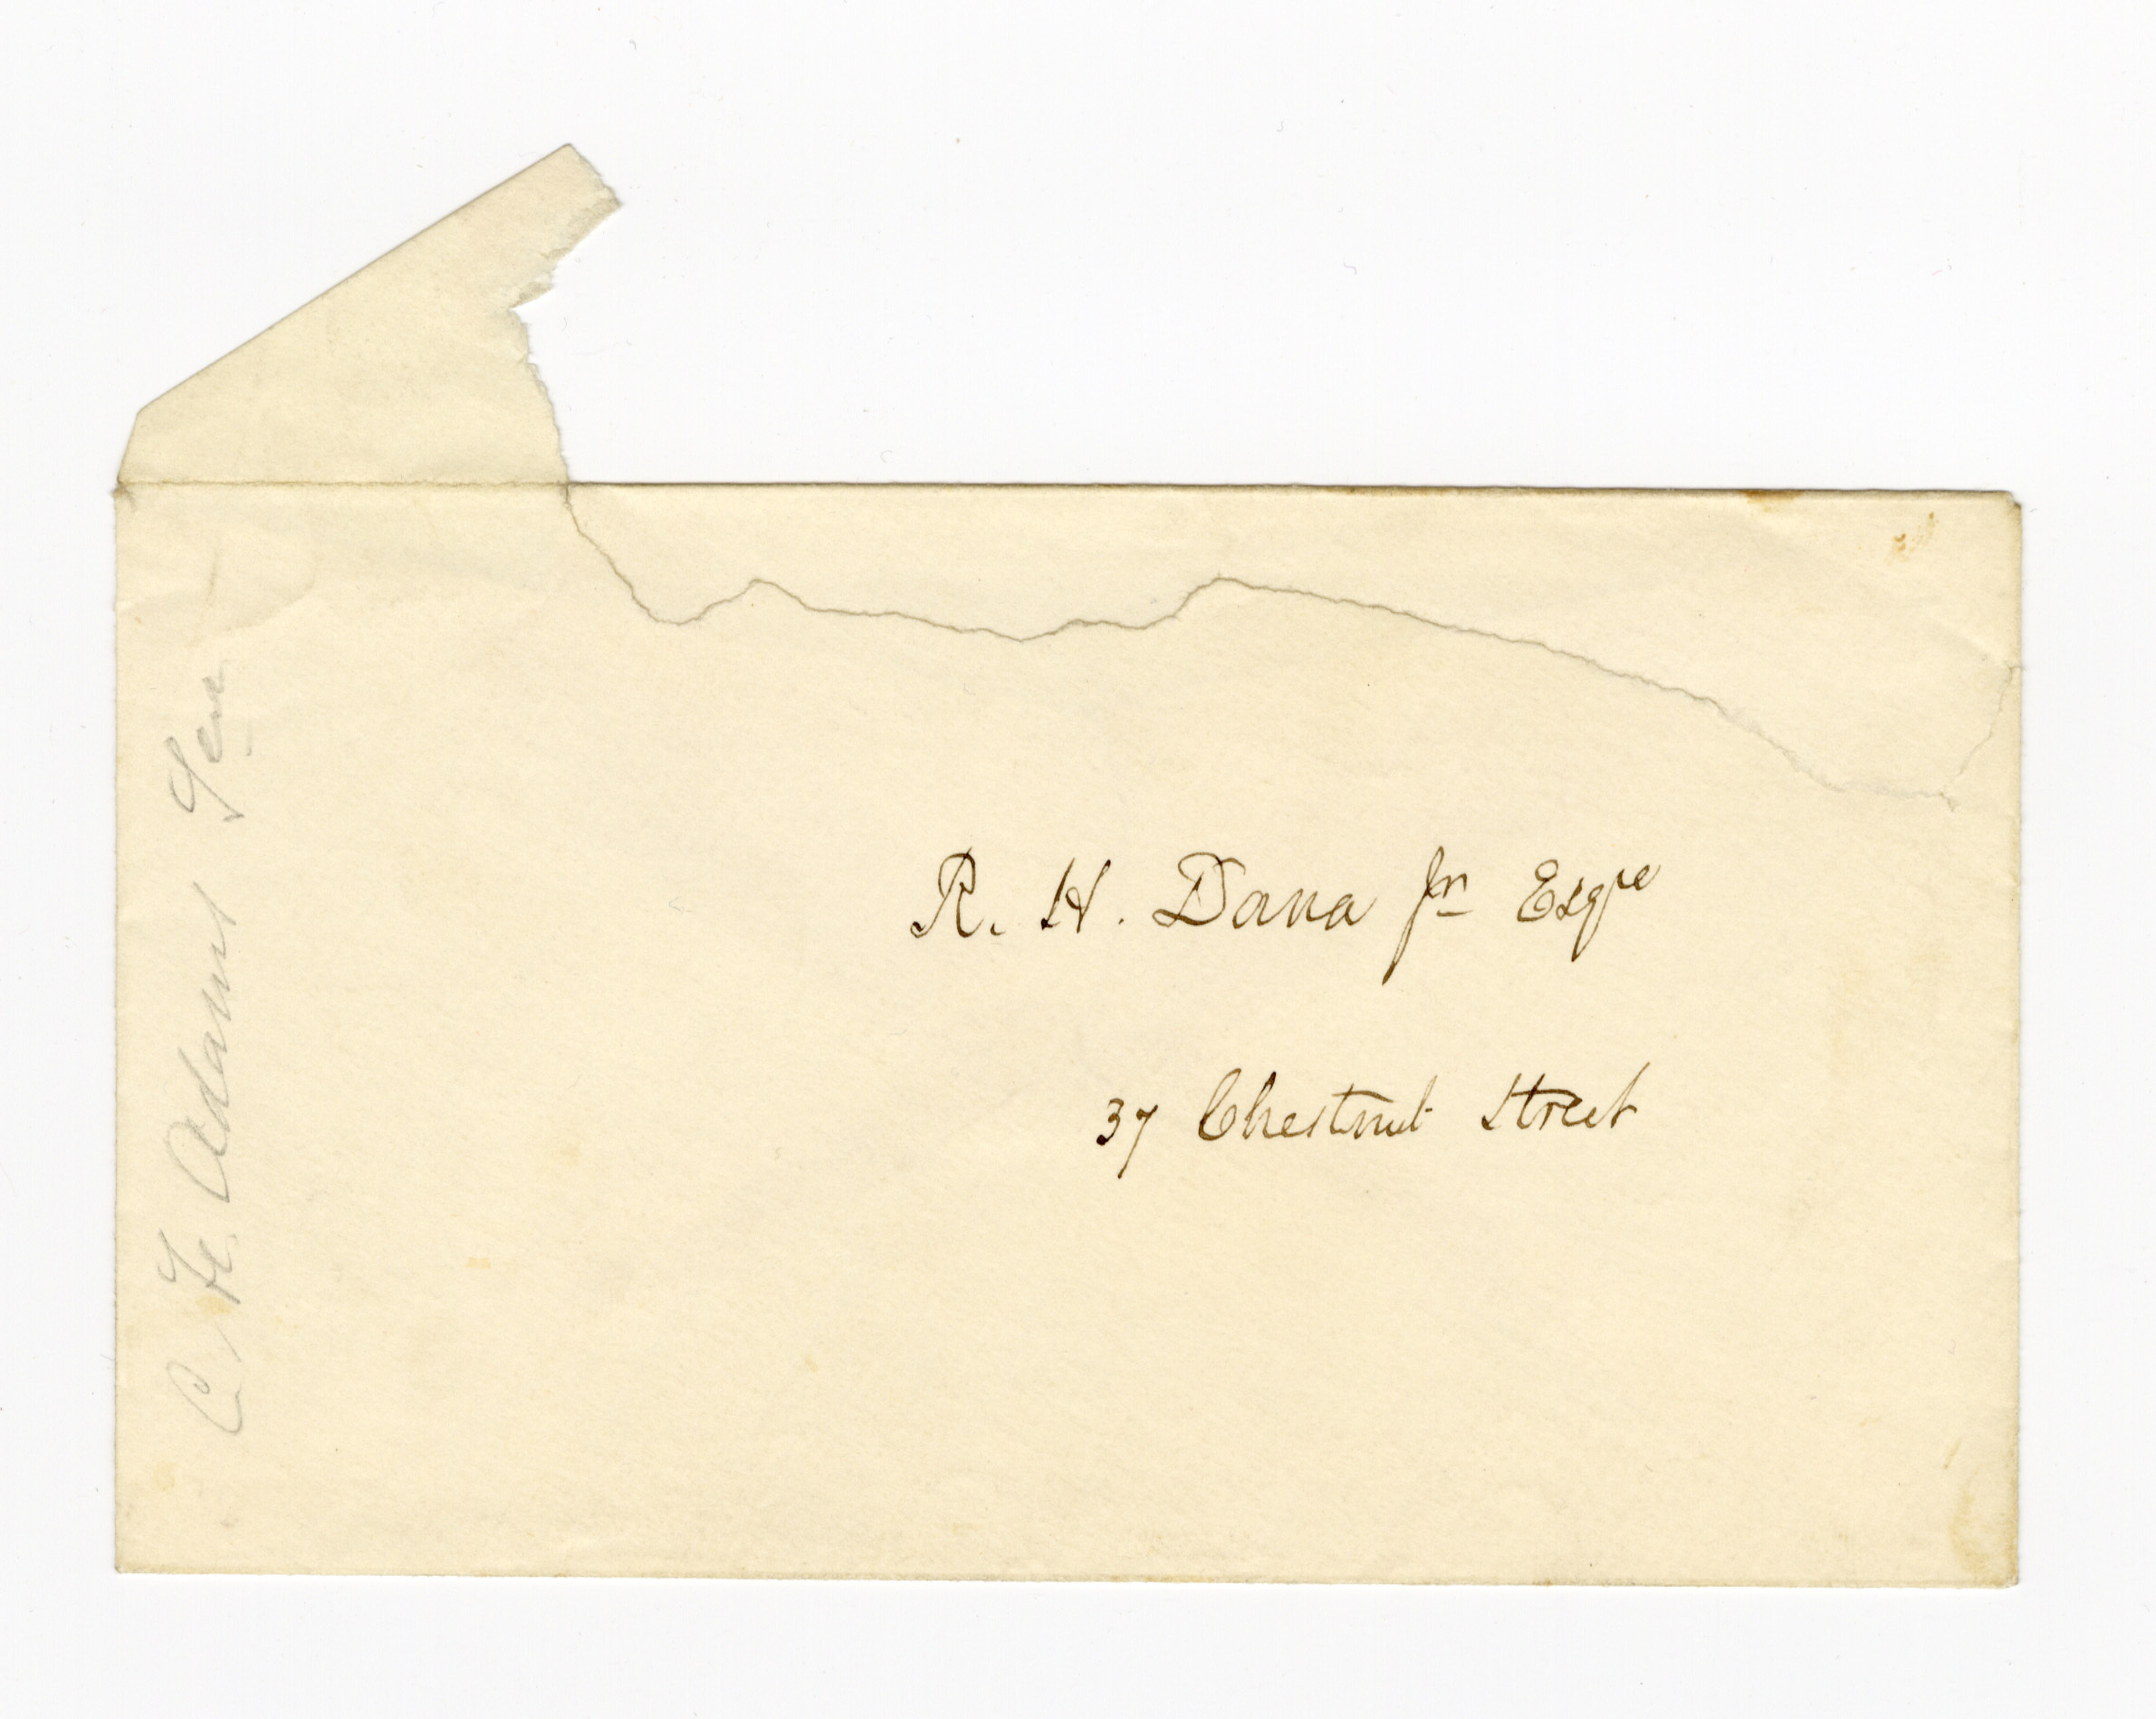 R. H. Dana Jr Esqre
37 Chestnut Street
C. F. Adams Sen